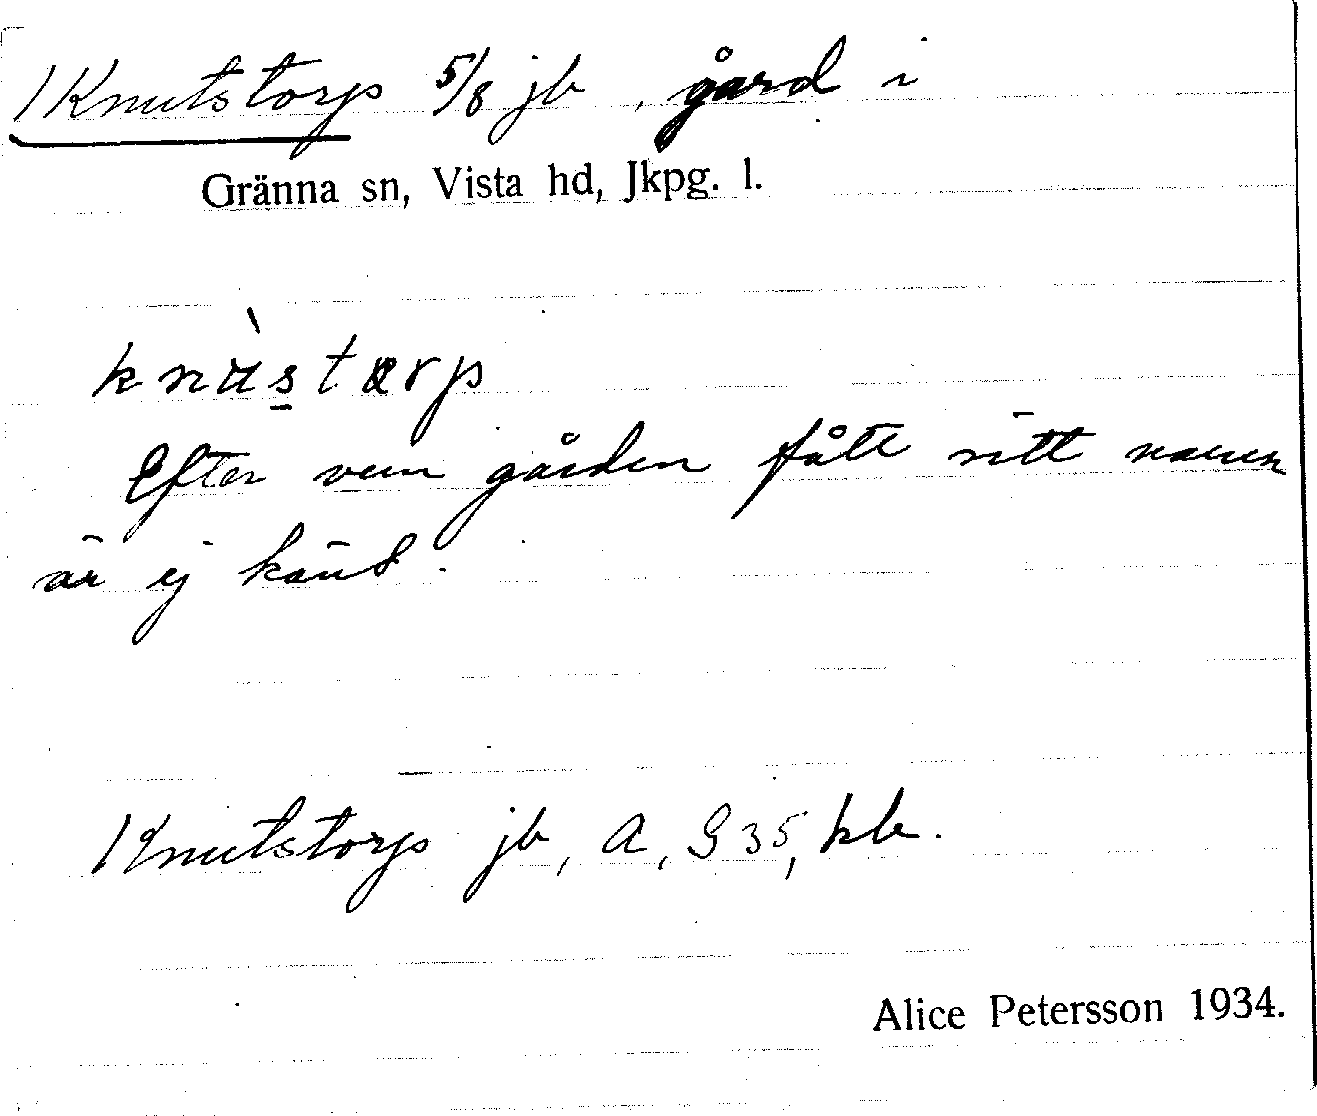 Knutstorp 5/8 jb, gård i
Gränna sn, Vista hd, Jkpg. l.
knùstɷrp
Efter vem gården fått sitt namn
är ej känt.
Knutstorp jb, A, G 35, kb.
Alice Petersson 1934.